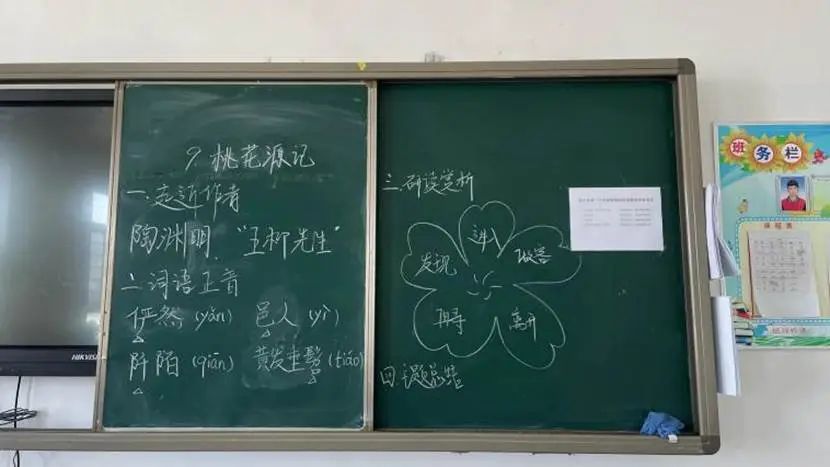 9.桃花源记
一.走近作者
陶渊明."五柳先生"
二.词语正音
俨然(yǎn) 邑人(yì)
阡陌(qiān) 黄发垂髫(tiáo)
三.研读赏析
发现
进入
做客
离开
再寻
四.主题总结
HIKVIS
班务栏
课程表